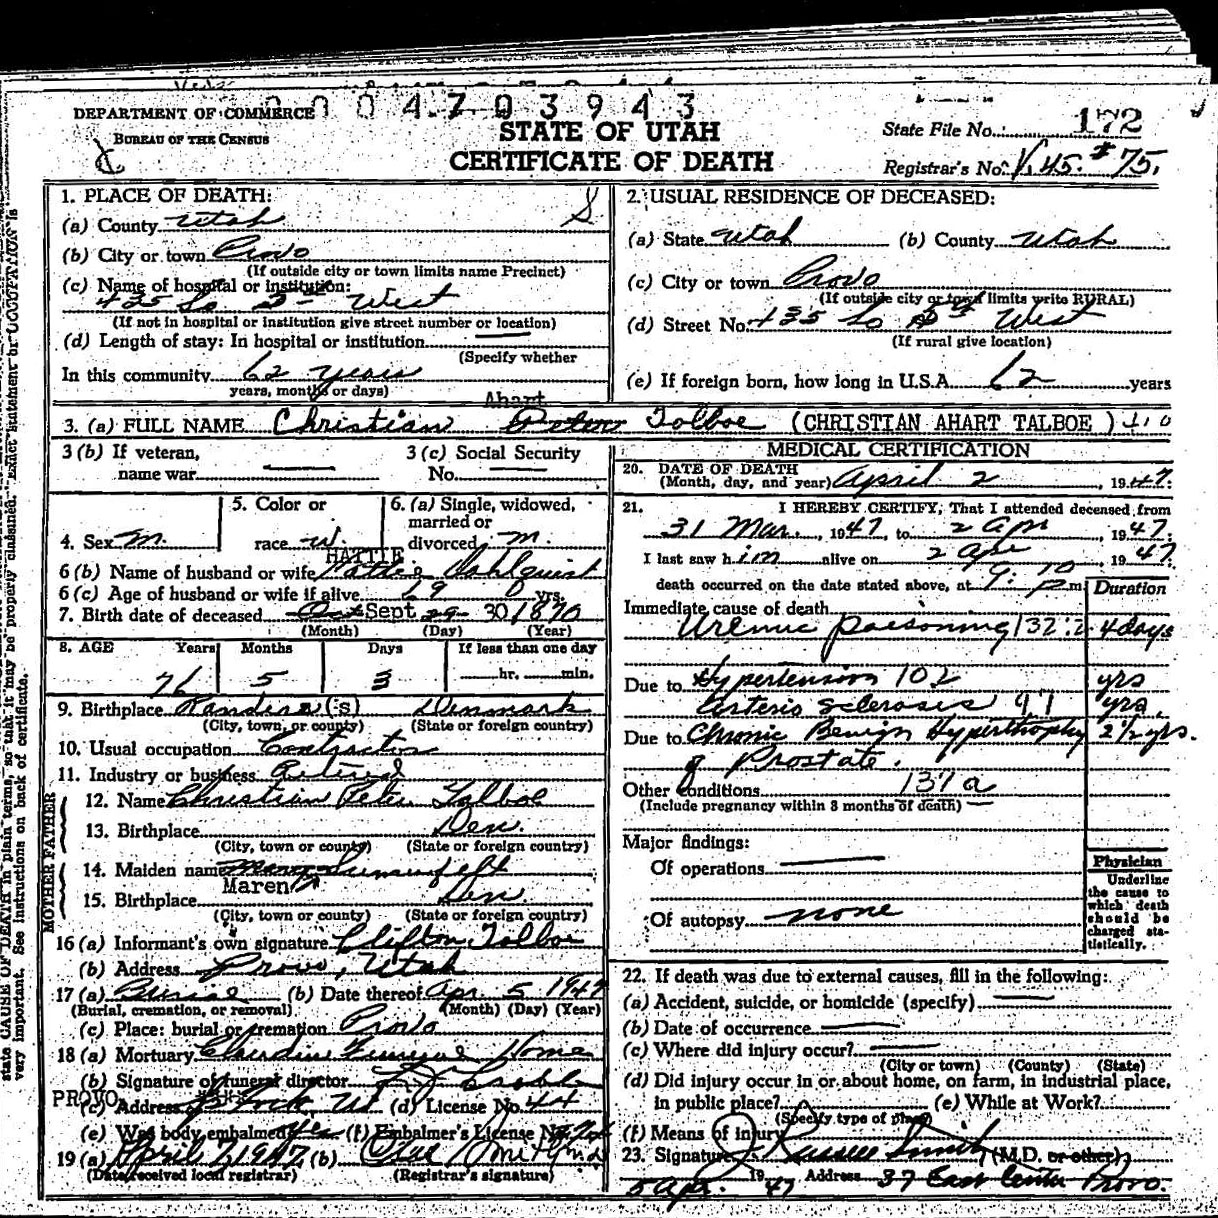 0004703943
DEPARTMENT OF COMMERCE
BUREAU OF THE CENSUS
STATE OF UTAH
CERTIFICATE OF DEATH
State File No. 172
Registrar's No. V.45. #75.
1. PLACE OF DEATH:
(a) County Utah
(b) City or town Provo
(If outside city or town limits name Precinct)
(c) Name of hospital or institution:
435 So 5th West
(If not in hospital or institution give street number or location)
(d) Length of stay: In hospital or institution
(Specify whether
In this community 62 years
years, months or days)
2. USUAL RESIDENCE OF DECEASED:
(a) State Utah (b) County Utah
(c) City or town Provo
(If outside city or town limits write RURAL)
(d) Street No. 435 So 5th West
(If rural give location)
(e) If foreign born, how long in U.S.A. 62 years
Ahart
3. (a) FULL NAME Christian Peter Talboe (CHRISTIAN AHART TALBOE)
3 (b) If veteran, name war
3 (c) Social Security No.
4. Sex M.
5. Color or race W.
6. (a) Single, widowed, married or divorced M.
HATTIE
6 (b) Name of husband or wife Hattie Dahlquist
6 (c) Age of husband or wife if alive 69 yrs.
7. Birth date of deceased Oct Sept 29 30 1870
(Month) (Day) (Year)
8. AGE Years Months Days If less than one day
76 5 3 hr. min.
9. Birthplace Randers (s) Denmark
(City, town, or county) (State or foreign country)
10. Usual occupation Contractor
11. Industry or business Retired
FATHER
12. Name Christian Peter Talboe
13. Birthplace Den.
(City, town or county) (State or foreign country)
MOTHER
14. Maiden name Mary
Maren
15. Birthplace Den.
(City, town or county) (State or foreign country)
16 (a) Informant's own signature Clifton Talboe
(b) Address Provo, Utah
17 (a) Burial (b) Date thereof Apr. 5 1947
(Burial, cremation, or removal) (Month) (Day) (Year)
(c) Place: burial or cremation Provo
18 (a) Mortuary Claudin Funeral Home
(b) Signature of funeral director
PROVO
(c) Address Ut (d) License No. 44
(e) Was body embalmed yes (f) Embalmer's License No.
19 (a) April 7, 1947 (b)
(Date received local registrar) (Registrar's signature)
MEDICAL CERTIFICATION
20. DATE OF DEATH
(Month, day, and year) April 2, 1947.
21. I HEREBY CERTIFY, That I attended deceased from
31 Mar., 1947, to 2 Apr, 1947.
I last saw him alive on 2 Apr 1947
death occurred on the date stated above, at 9:10 p m
Duration
Immediate cause of death
Uremic poisoning 132.2 4 days
Due to Hypertension 102 yrs
Arterio sclerosis 97 yrs,
Due to Chronic Benign Hyperthophy 2 1/2 yrs.
of Prostate.
Other conditions 137a
(Include pregnancy within 3 months of death)
Major findings:
Of operations
Of autopsy none
Physician
Underline the cause to which death should be charged statistically.
22. If death was due to external causes, fill in the following:
(a) Accident, suicide, or homicide (specify)
(b) Date of occurrence
(c) Where did injury occur?
(City or town) (County) (State)
(d) Did injury occur in or about home, on farm, in industrial place,
in public place? (e) While at Work?
(Specify type of place)
(f) Means of injury
23. Signature J. Russell Smith (M.D. or other)
5 Apr. 1947 Address 37 East Center Provo.
state CAUSE OF DEATH in plain terms, so that it may be properly classified. Exact statement of OCCUPATION is
very important. See instructions on back of certificate.